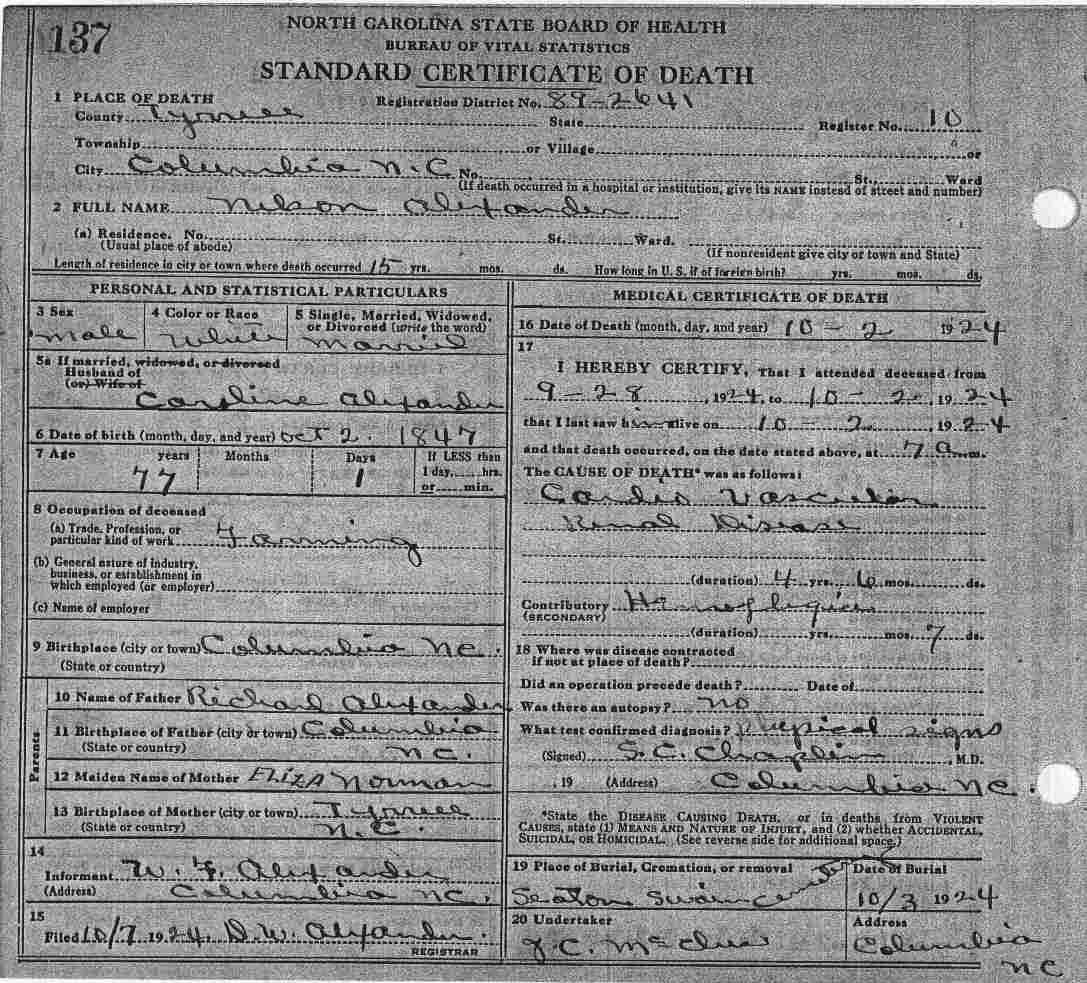 137
NORTH CAROLINA STATE BOARD OF HEALTH
BUREAU OF VITAL STATISTICS
STANDARD CERTIFICATE OF DEATH
1 PLACE OF DEATH Registration District No. 89-2641
County Tyrrell State Register No. 10
Township or Village or
City Columbia N.C. No. St., Ward
(If death occurred in a hospital or institution, give its NAME instead of street and number)
2 FULL NAME Nelson Alexander
(a) Residence. No. St. Ward.
(Usual place of abode) (If nonresident give city or town and State)
Length of residence in city or town where death occurred 15 yrs. mos. ds. How long in U. S. if of foreign birth? yrs. mos. ds.
PERSONAL AND STATISTICAL PARTICULARS
3 Sex 4 Color or Race 5 Single, Married, Widowed, or Divorced (write the word)
Male White Married
5a If married, widowed, or divorced
Husband of
(or) Wife of
Caroline Alexander
6 Date of birth (month, day, and year) Oct 2. 1847
7 Age years Months Days If LESS than
1 day, hrs.
or min.
77 1
8 Occupation of deceased
(a) Trade, Profession, or
particular kind of work Farming
(b) General nature of industry,
business, or establishment in
which employed (or employer)
(c) Name of employer
9 Birthplace (city or town) Columbia NC.
(State or country)
Parents
10 Name of Father Richard Alexander
11 Birthplace of Father (city or town) Columbia
(State or country) NC.
12 Maiden Name of Mother Eliza Norman
13 Birthplace of Mother (city or town) Tyrrell
(State or country) N.C.
14
Informant W. F. Alexander
(Address) Columbia NC.
15
Filed 10/7 1924. D.W. Alexander.
REGISTRAR
MEDICAL CERTIFICATE OF DEATH
16 Date of Death (month, day, and year) 10-2 1924
17
I HEREBY CERTIFY, That I attended deceased from
9-28, 1924, to 10-2, 1924
that I last saw him alive on 10-2, 1924
and that death occurred, on the date stated above, at 7 a.m.
The CAUSE OF DEATH* was as follows:
Cardio Vascular
Renal Disease
(duration) 4 yrs. 6 mos. ds.
Contributory Hemiplegia
(SECONDARY)
(duration) yrs. mos. 7 ds.
18 Where was disease contracted
if not at place of death?
Did an operation precede death? Date of
Was there an autopsy? no
What test confirmed diagnosis? physical signs
(Signed) S.C. Chaplin, M.D.
, 19 (Address) Columbia NC.
*State the DISEASE CAUSING DEATH, or in deaths from VIOLENT
CAUSES, state (1) MEANS AND NATURE OF INJURY, and (2) whether ACCIDENTAL,
SUICIDAL, OR HOMICIDAL. (See reverse side for additional space.)
19 Place of Burial, Cremation, or removal Date of Burial
Seaton Swain 10/3 1924
20 Undertaker Address
J.C. McClees Columbia
NC